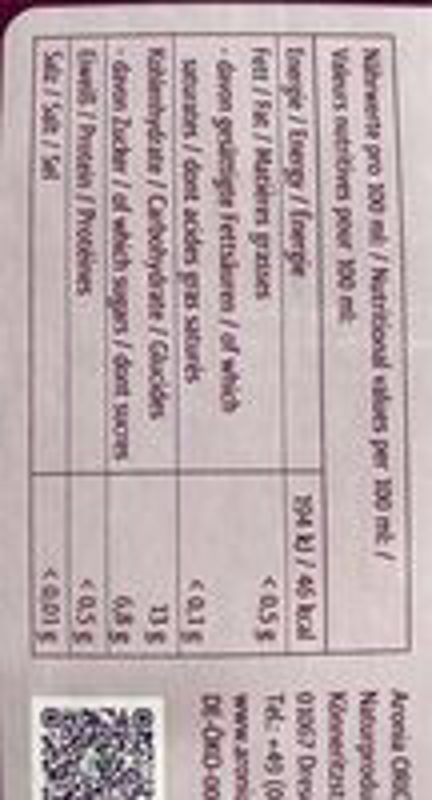 Nährwerte pro 100 ml: / Nutritional values per 100 ml: /
Valeurs nutritives pour 100 ml:
Energie / Energy / Énergie 194 kJ / 46 kcal
Fett / Fat / Matières grasses < 0,5 g
- davon gesättigte Fettsäuren / of which
saturates / dont acides gras saturés < 0,1 g
Kohlenhydrate / Carbohydrate / Glucides 13 g
- davon Zucker / of which sugars / dont sucres 6,8 g
Eiweiß / Protein / Protéines < 0,5 g
Salz / Salt / Sel < 0,01 g
Aronia
01067
Tel.: +49 (0
DE-ÖKO-00